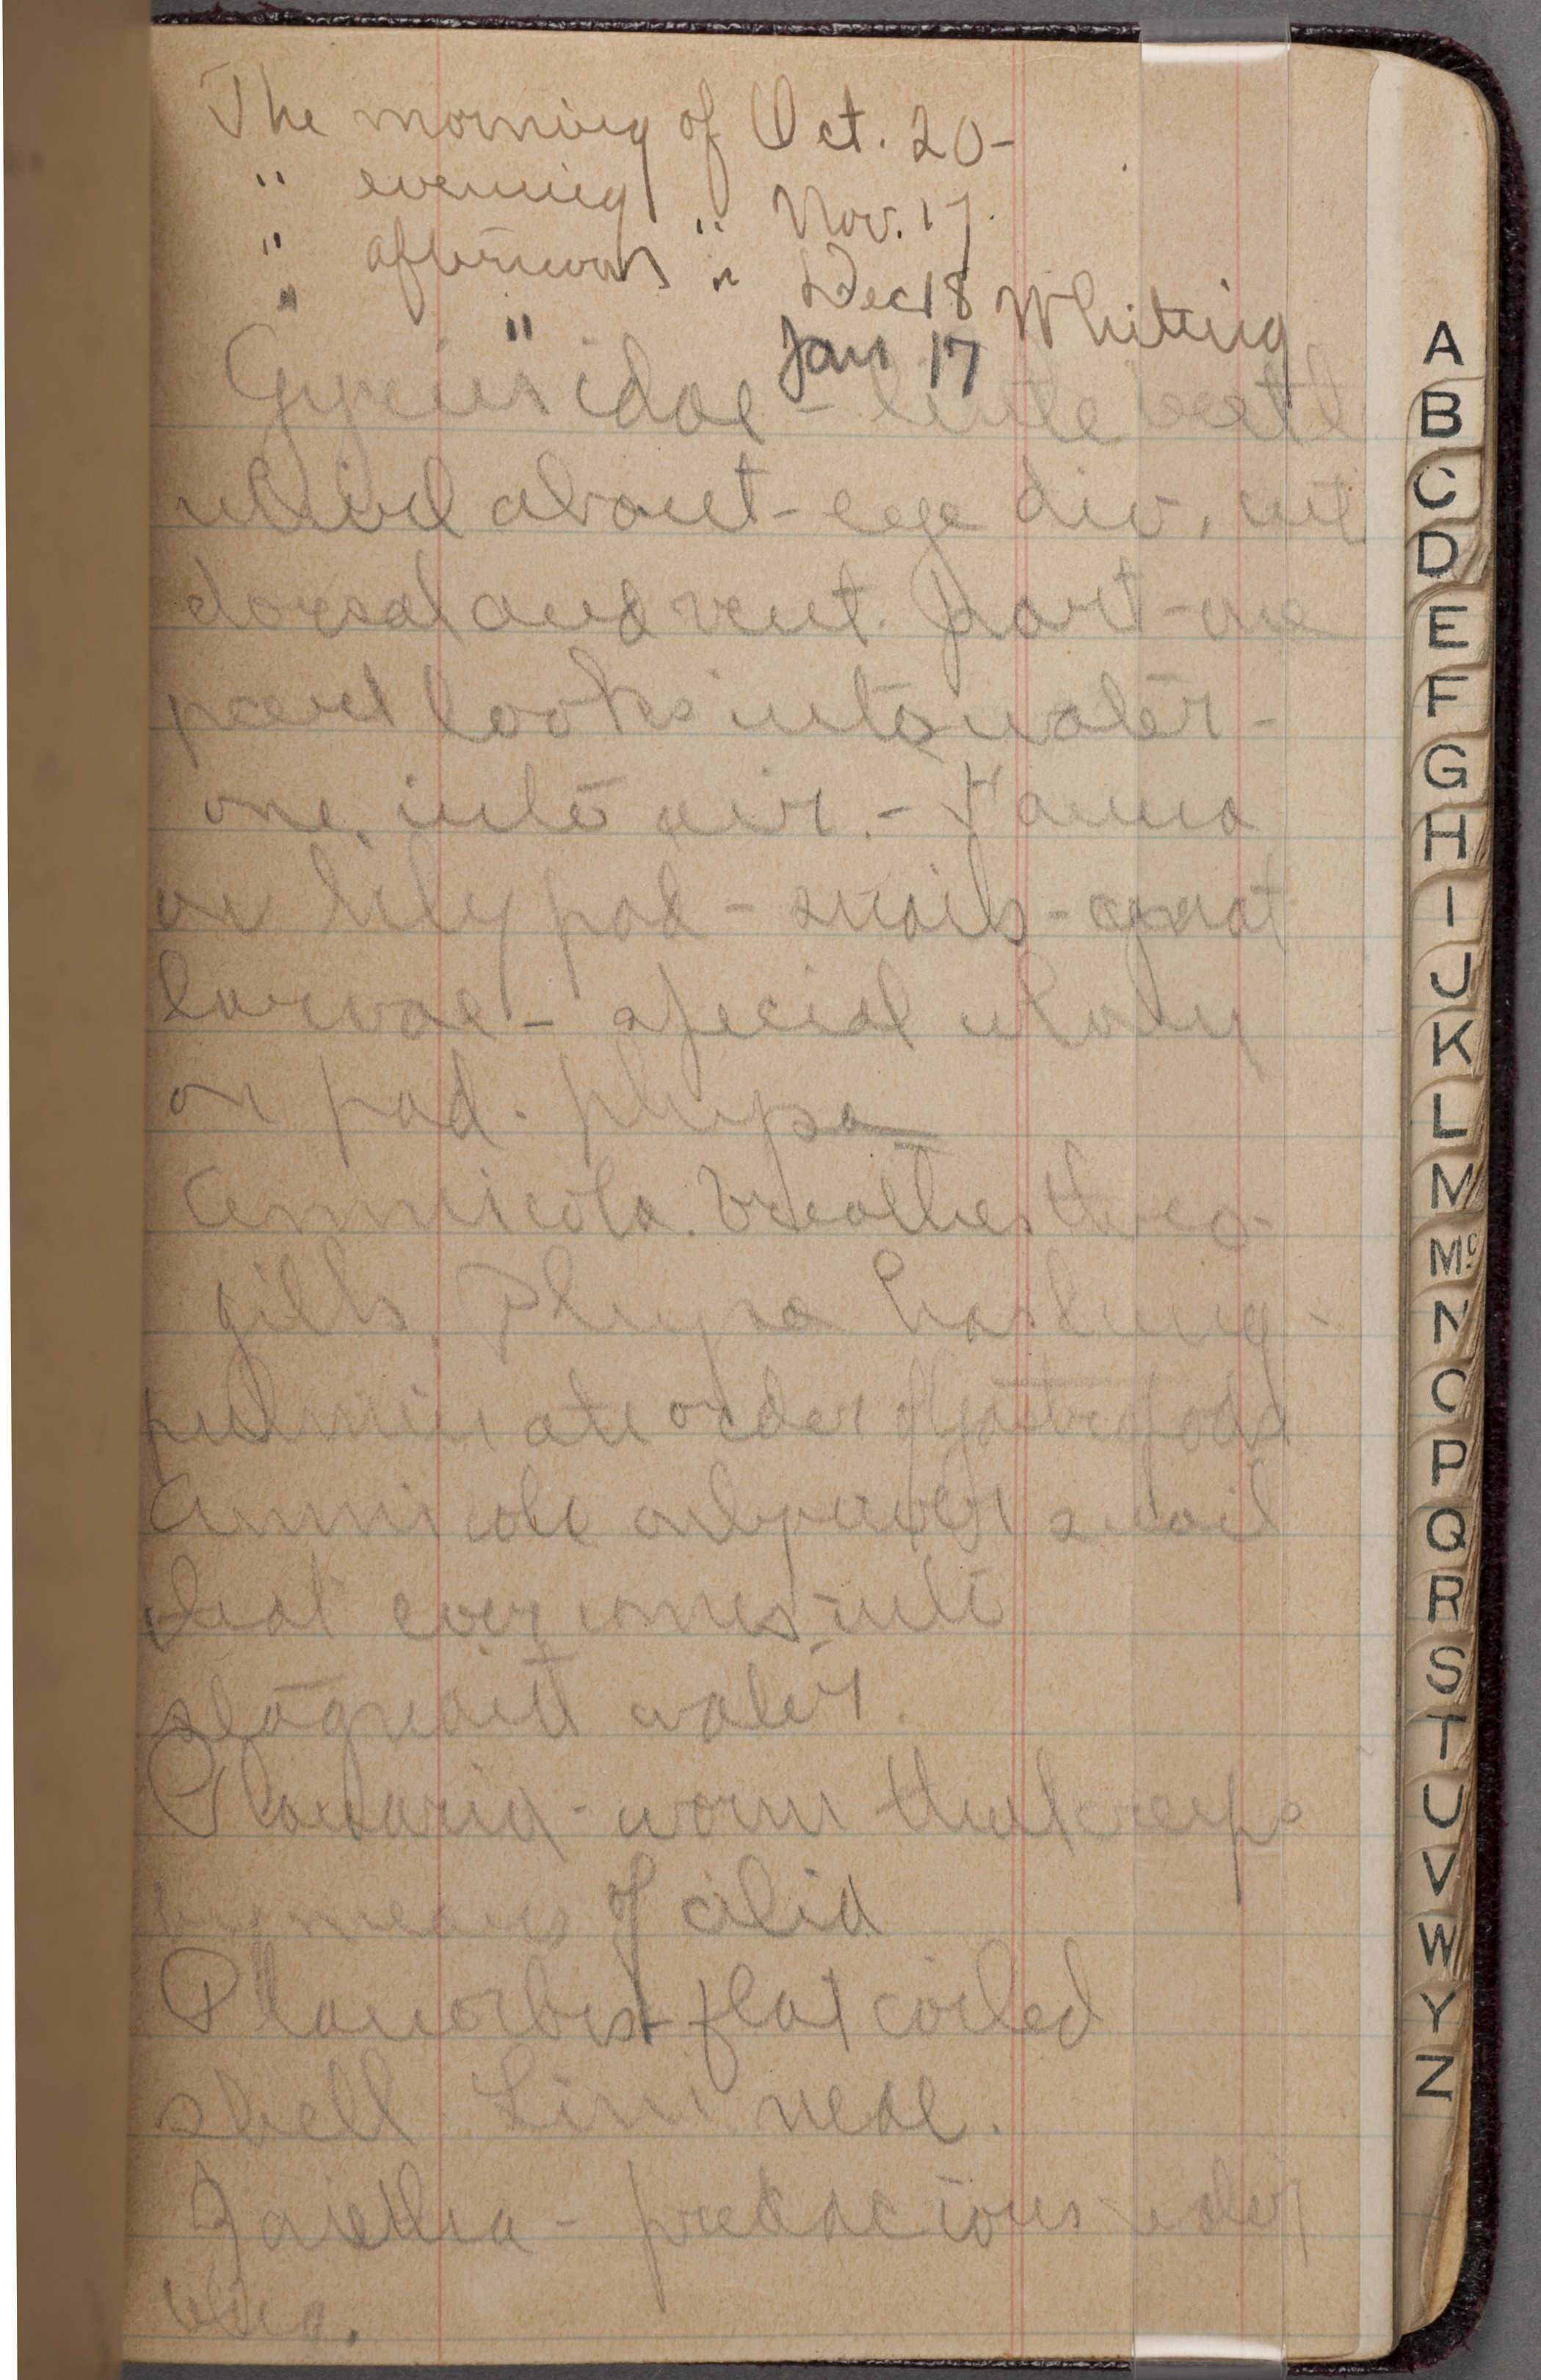 The morning of Oct. 20-
" evening " Nov. 17.
" afternoon " Dec 18 Whiting
" " Jan 17
Gyrinidae - little beetl
whirl about - eye div. int
dorsal and vent. part - one
part looks into water -
one into air. - Fauna
on lily pad - snails - gnat
larvae - special
on pad. physa
Amnicola. breathes thro
gills. Physa has lung -
pulminate order of gastropods
Amnicola only river snail
that ever comes into
stagnant water.
Planaria - worm that creeps
by means of cilia
Planorbis - flat coiled
shell Limneae.
Zaietha - predacious water
bug.
A
B
C
D
E
F
G
H
I
J
K
L
M
Mc
N
O
P
Q
R
S
T
U
V
W
Y
Z